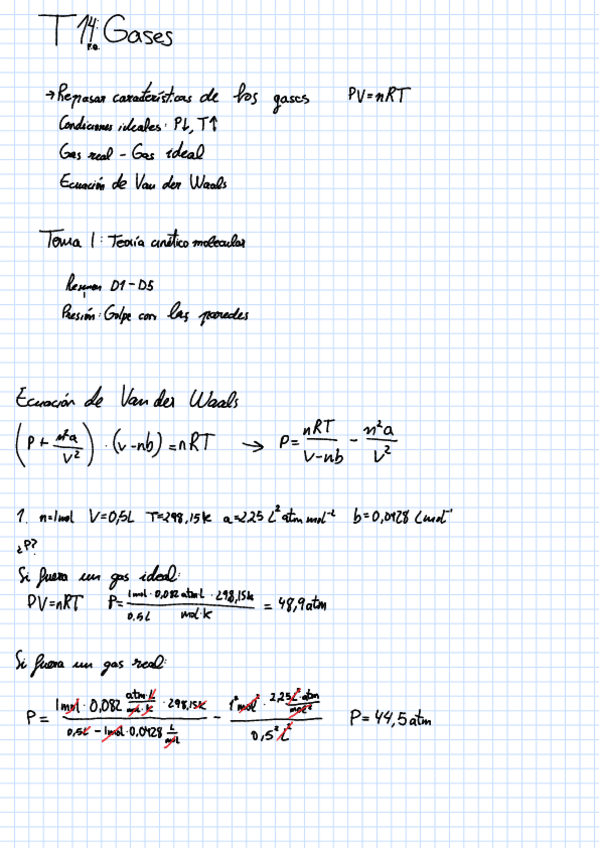 T 14: Gases
F.Q.
→ Repasar características de los gases PV=nRT
Condiciones ideales: P↓, T↑
Gas real - Gas ideal
Ecuación de Van der Waals
Tema 1: Teoría cinético molecular
Resumen D1-D5
Presión: Golpe con las paredes
Ecuación de Van der Waals
(P + n²a/V²) · (V-nb) = nRT → P = nRT/V-nb - n²a/V²
1. n=1mol V=0,5L T=298,15K a=2,25 L² atm mol⁻² b=0,0428 L mol⁻¹
¿P?
Si fuera un gas ideal:
PV=nRT P= 1mol · 0,082 atm·L · 298,15K / 0,5L mol·K = 48,9 atm
Si fuera un gas real:
P = 1mol · 0,082 atm·L/mol·K · 298,15K / 0,5L - 1mol · 0,0428 L/mol - 1² mol² · 2,25 L² atm/mol² / 0,5² L² P = 44,5 atm